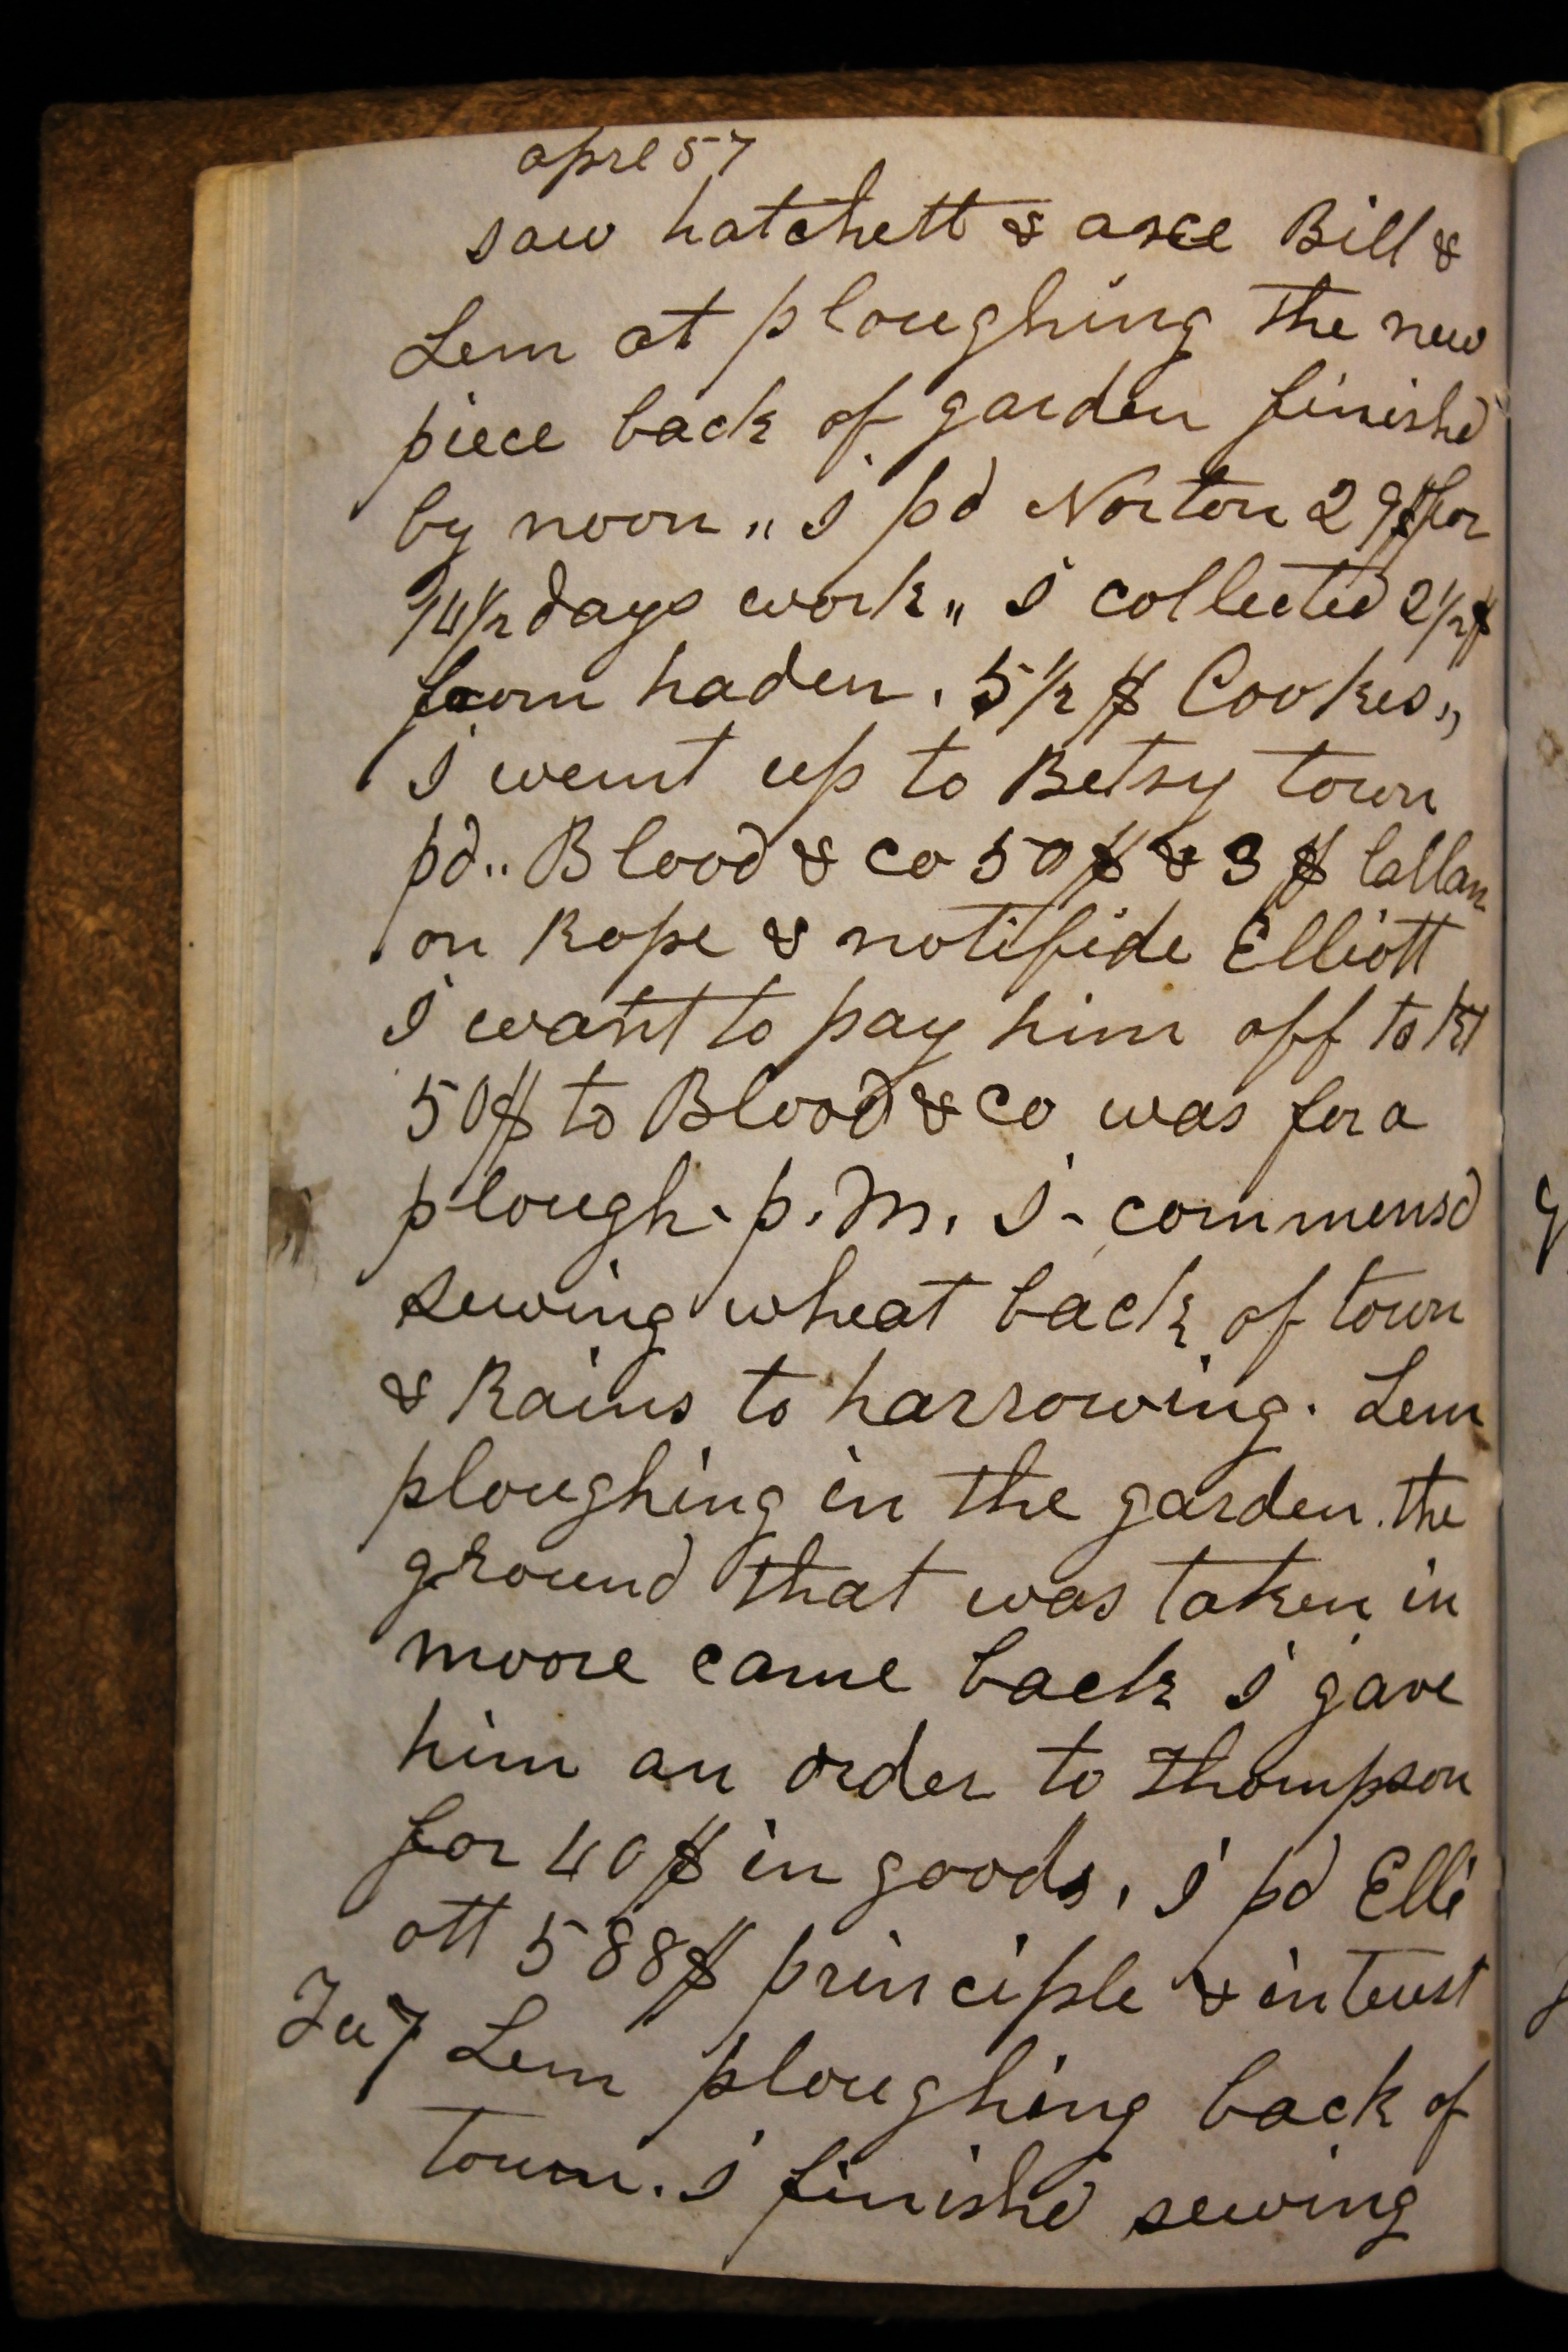 aprl 57
saw hatchett & axe Bill &
Lem at ploughing the new
piece back of garden finishd
by noon „ I pd Norton 29$ for
14½ days work „ I collected 2½$
from haden . 5½ $ Cookes „
I went up to Betsy town
pd .. Blood & co 50$ & 3 $ ballan
on Rope & notifide Elliott
I want to pay him off
50$ to Blood & co was for a
plough - p. M. I - commensd
sewing wheat back of town
& Rains to harrowing . Lem
ploughing in the garden . the
ground that was taken in
moore came back I gave
him an order to Thompson
for 40 $ in goods , I pd Elli
ott 588$ principle & interest
Tu 7 Lem ploughing back of
town . I finishd sewing